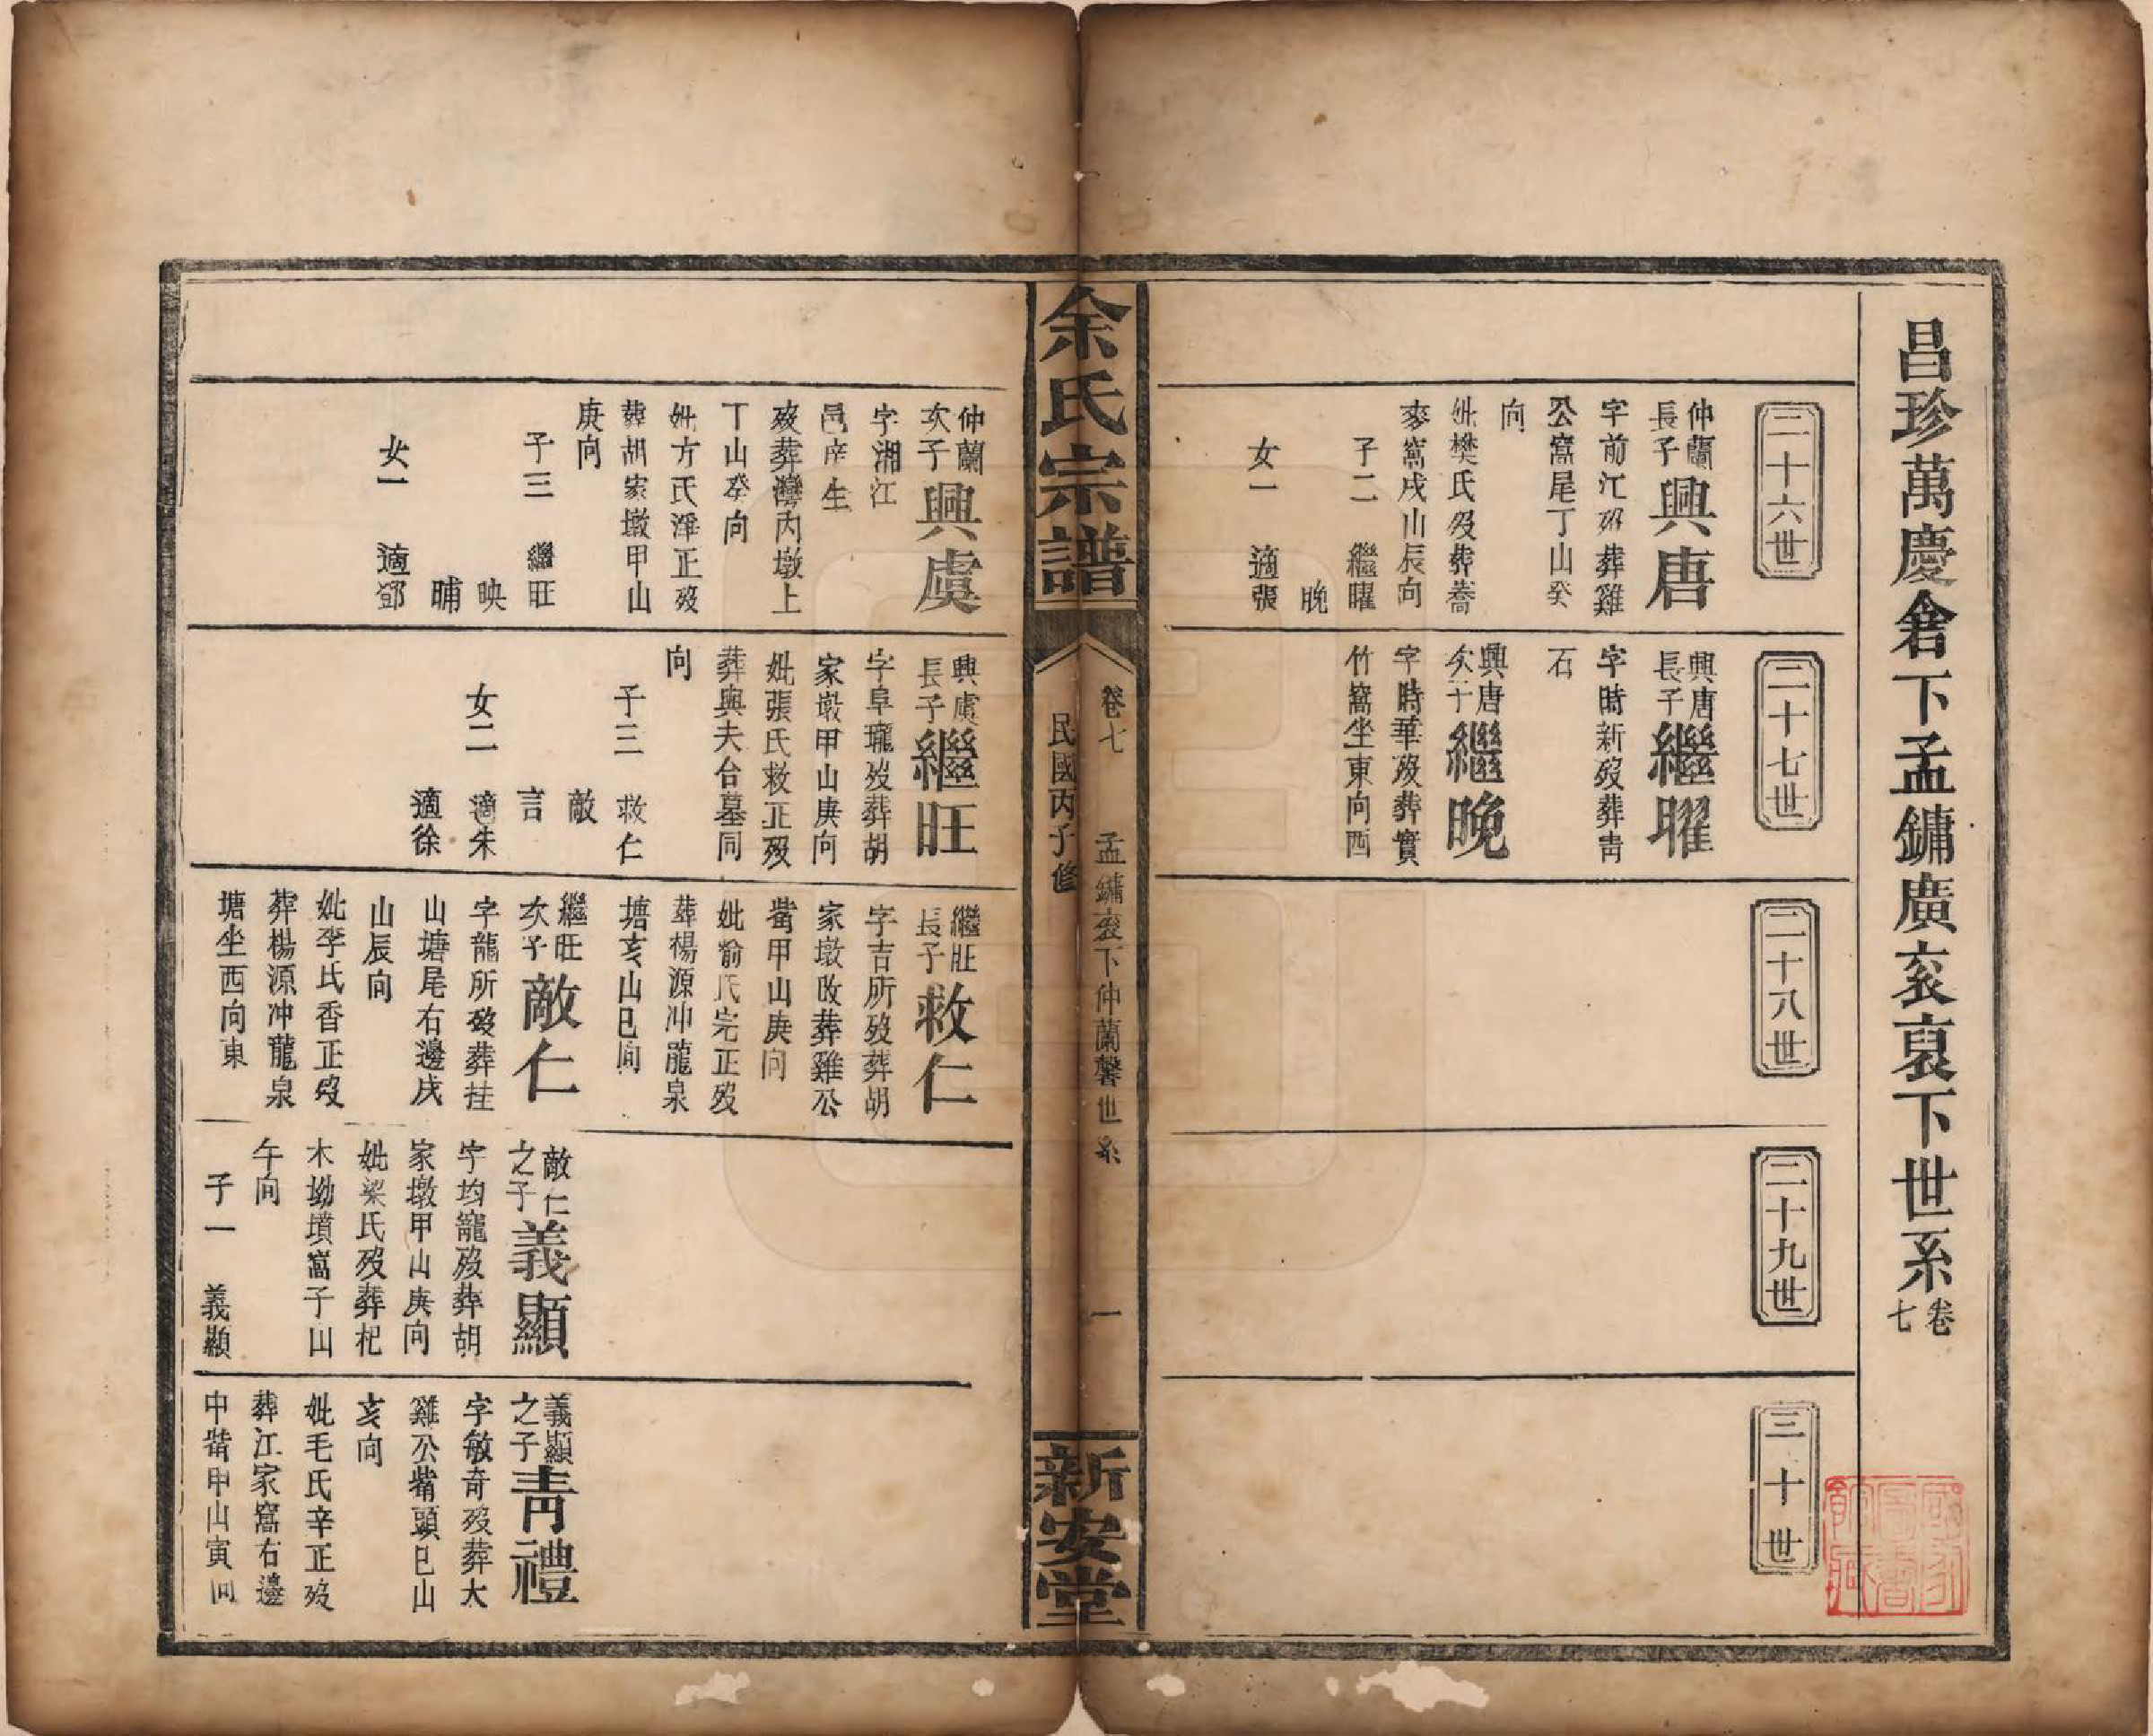 昌珍萬慶畣下孟鏞廣袤裒下世系卷七
二十六世
仲蘭長子興唐
字前江歿葬雞
公窩尾丁山癸
向
妣樊氏歿葬喬
麥窩戌山辰向
子二 繼曜
晚
女一 適張
二十七世
興唐長子繼曜
字時新歿葬靑
石
興唐次子繼晚
字時華歿葬實
竹窩坐東向西
二十八世
二十九世
三十世
余氏宗譜
卷七 孟鏞袤下仲蘭馨世系 一
民國丙子修
新安堂
仲蘭次子興虞
字湘江
邑庠生
歿葬灣內墩上
丁山癸向
妣方氏淨正歿
葬胡家墩甲山
庚向
子三 繼旺
映
晡
女一 適鄧
興虞長子繼旺
字阜瓏歿葬胡
家墩甲山庚向
妣張氏救正歿
葬與夫台墓同
向
子三 救仁
敵
言
女二 適朱
適徐
繼旺長子救仁
字吉所歿葬胡
家墩改葬雞公
嘴甲山庚向
妣喻氏完正歿
葬楊源冲龍泉
塘亥山巳向
繼旺次子敵仁
字龍所歿葬挂
山塘尾右邊戌
山辰向
妣李氏香正歿
葬楊源冲龍泉
塘坐西向東
敵仁之子義顯
字均寵歿葬胡
家墩甲山庚向
妣梁氏歿葬杞
木坳墳窩子山
午向
子一 義顯
義顯之子靑禮
字敏奇歿葬大
雞公嘴頭巳山
亥向
妣毛氏辛正歿
葬江家窩右邊
中嘴申山寅向